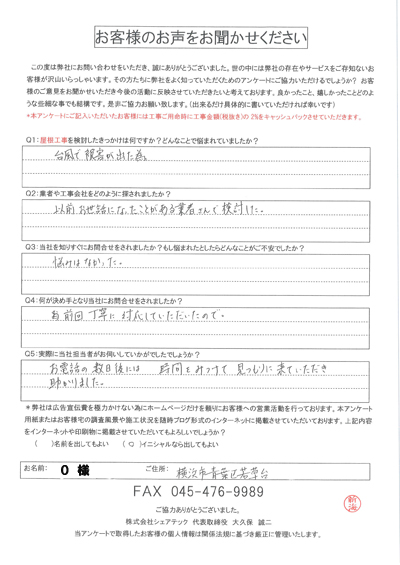 お客様のお声をお聞かせください
この度は弊社にお問い合わせをいただき、誠にありがとうございました。世の中には弊社の存在やサービスをご存知ないお
客様が沢山いらっしゃいます。その方たちに弊社をよく知っていただくためのアンケートにご協力いただけるでしょうか? お客
様のご意見をお聞かせいただき今後の活動に反映させていただきたいと考えております。良かったこと、嬉しかったことどのよ
うな些細な事でも結構です。是非ご協力お願い致します。(出来るだけ具体的に書いていただければ幸いです)
*本アンケートにご記入いただいたお客様には工事ご用命時に工事金額(税抜き)の 2%をキャッシュバックさせていただきます。
Q1:屋根工事を検討したきっかけは何ですか?どんなことで悩まれていましたか?
台風で被害が出た為
Q2:業者や工事会社をどのように探されましたか?
以前お世話になったことがある業者さんで検討した。
Q3:当社を知りすぐにお問合せをされましたか?もし悩まれたとしたらどんなことがご不安でしたか?
悩みはなかった。
Q4:何が決め手となり当社にお問合せをされましたか?
前回丁寧に対応していただいたので。
Q5:実際に当社担当者がお伺いしていかがでしたでしょうか?
お電話の数日後には 時間をみつけて見つもりに来ていただき
助かりました。
*弊社は広告宣伝費を極力かけない為にホームページだけを頼りにお客様への営業活動を行っております。本アンケート
用紙またはお客様宅の調査風景や施工状況を随時ブログ形式のインターネットに掲載させていただいております。上記内容
をインターネットや印刷物に掲載させていただいてもよろしいでしょうか?
( )名前を出してもよい (○)イニシャルなら出してもよい
お名前: O 様 ご住所: 横浜市青葉区若草台
FAX 045-476-9989
ご協力ありがとうございました。
株式会社シェアテック 代表取締役 大久保 誠二
当アンケートで取得したお客様の個人情報は関係法規に基づき厳正に管理いたします。